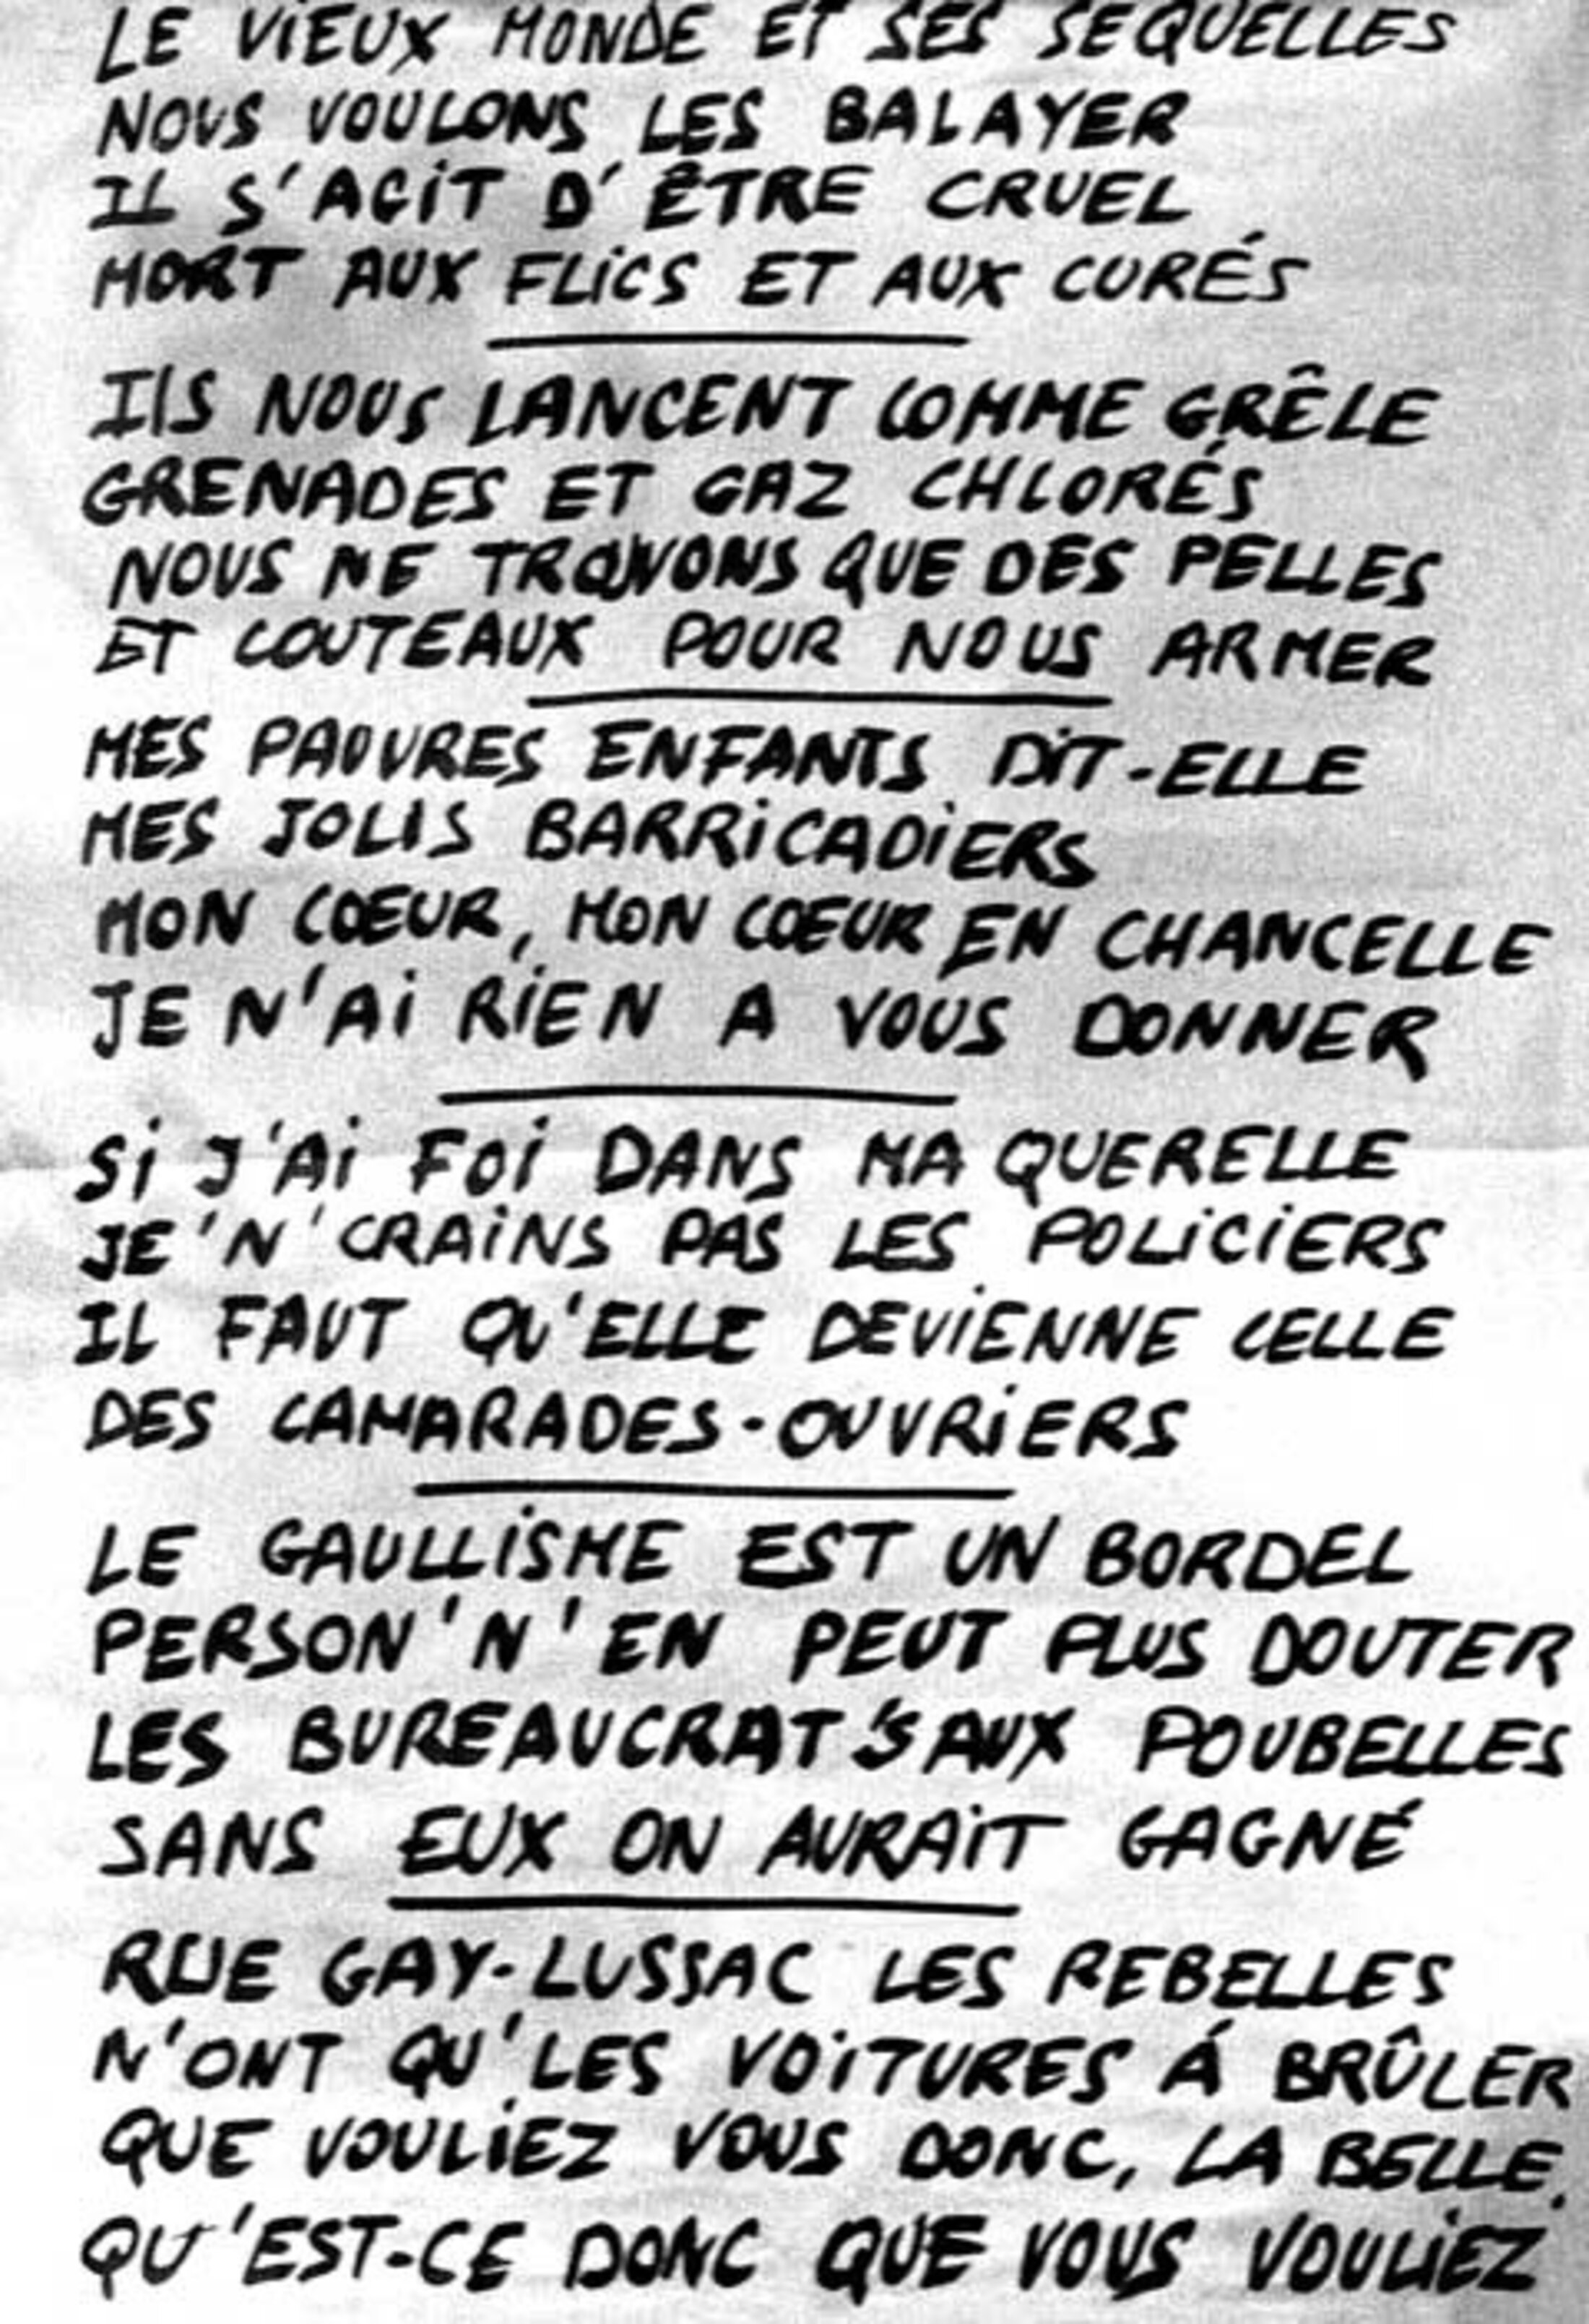 LE VIEUX MONDE ET SES SEQUELLES
NOUS VOULONS LES BALAYER
IL S'AGIT D'ÊTRE CRUEL
MORT AUX FLICS ET AUX CURÉS
ILS NOUS LANCENT COMME GRÊLE
GRENADES ET GAZ CHLORÉS
NOUS NE TROUVONS QUE DES PELLES
ET COUTEAUX POUR NOUS ARMER
MES PAUVRES ENFANTS DIT-ELLE
MES JOLIS BARRICADIERS
MON CŒUR, MON CŒUR EN CHANCELLE
JE N'AI RIEN A VOUS DONNER
SI J'AI FOI DANS MA QUERELLE
JE'N'CRAINS PAS LES POLICIERS
IL FAUT QU'ELLE DEVIENNE CELLE
DES CAMARADES-OUVRIERS
LE GAULLISME EST UN BORDEL
PERSON'N'EN PEUT PLUS DOUTER
LES BUREAUCRAT'S AUX POUBELLES
SANS EUX ON AURAIT GAGNÉ
RUE GAY-LUSSAC LES REBELLES
N'ONT QU'LES VOITURES Á BRÛLER
QUE VOULIEZ VOUS DONC, LA BELLE,
QU'EST-CE DONC QUE VOUS VOULIEZ